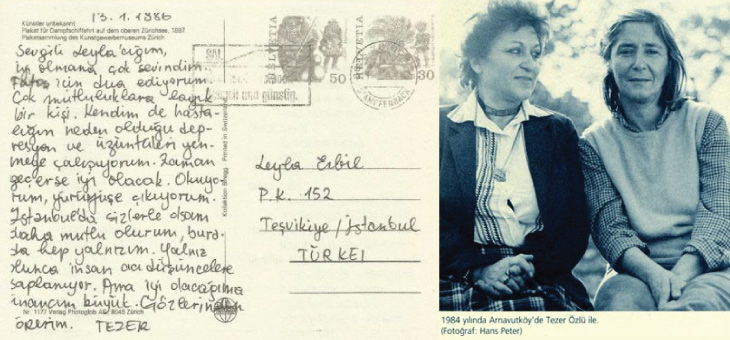 13.1.1986
Künstler unbekannt
Plakat für Dampfschiffahrt auf dem oberen Zürichsee, 1897
Plakatsammlung des Kunstgewerbemuseums Zürich
Sevgili Leyla'cığım,
iyi olmana çok sevindim.
için dua ediyorum.
Çok mutluluklara layık
bir kişi. Kendim de hasta-
lığın neden olduğu dep-
resyon ve üzüntüleri yen-
meye çalışıyorum. Zaman
geçerse iyi olacak. Okuyo-
rum, yürüyüşe çıkıyorum.
İstanbul'da sizlerle olsam
daha mutlu olurum, bura-
da hep yalnızım. Yalnız
olunca insan acı düşüncelere
saplanıyor. Ama iyi olacağıma
inancım büyük. Gözlerinden
öperim. TEZER
Nr. 1177 Verlag Photoglob AG, 8045 Zürich
Printed in Switzerland
HELVETIA
50
HELVETIA
30
günstig.
Leyla Erbil
P.K. 152
Teşvikiye / İstanbul
TÜRKEI
1984 yılında Arnavutköy'de Tezer Özlü ile.
(Fotoğraf: Hans Peter)